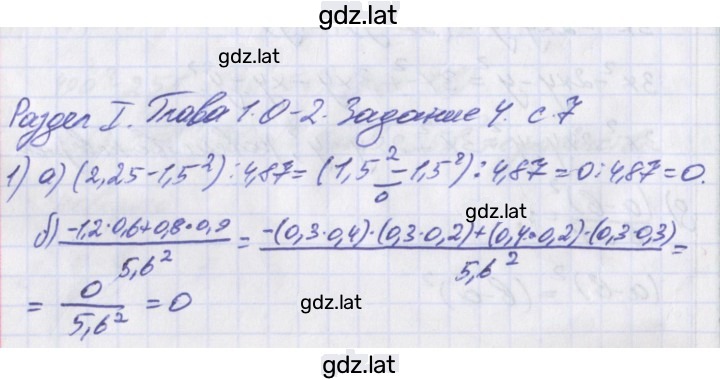 gdz.lat
gdz.lat
Раздел I. Глава 1. О-2. Задание 4. с. 7
1) а) (2,25-1,5²):4,87=(1,5²-1,5²):4,87=0:4,87=0.
0
б) -1,2·0,6+0,8·0,9 / 5,6² = -(0,3·0,4)·(0,3·0,2)+(0,4·0,2)·(0,3·0,3) / 5,6² =
gdz.lat
= 0 / 5,6² = 0
gdz.lat
gdz.lat